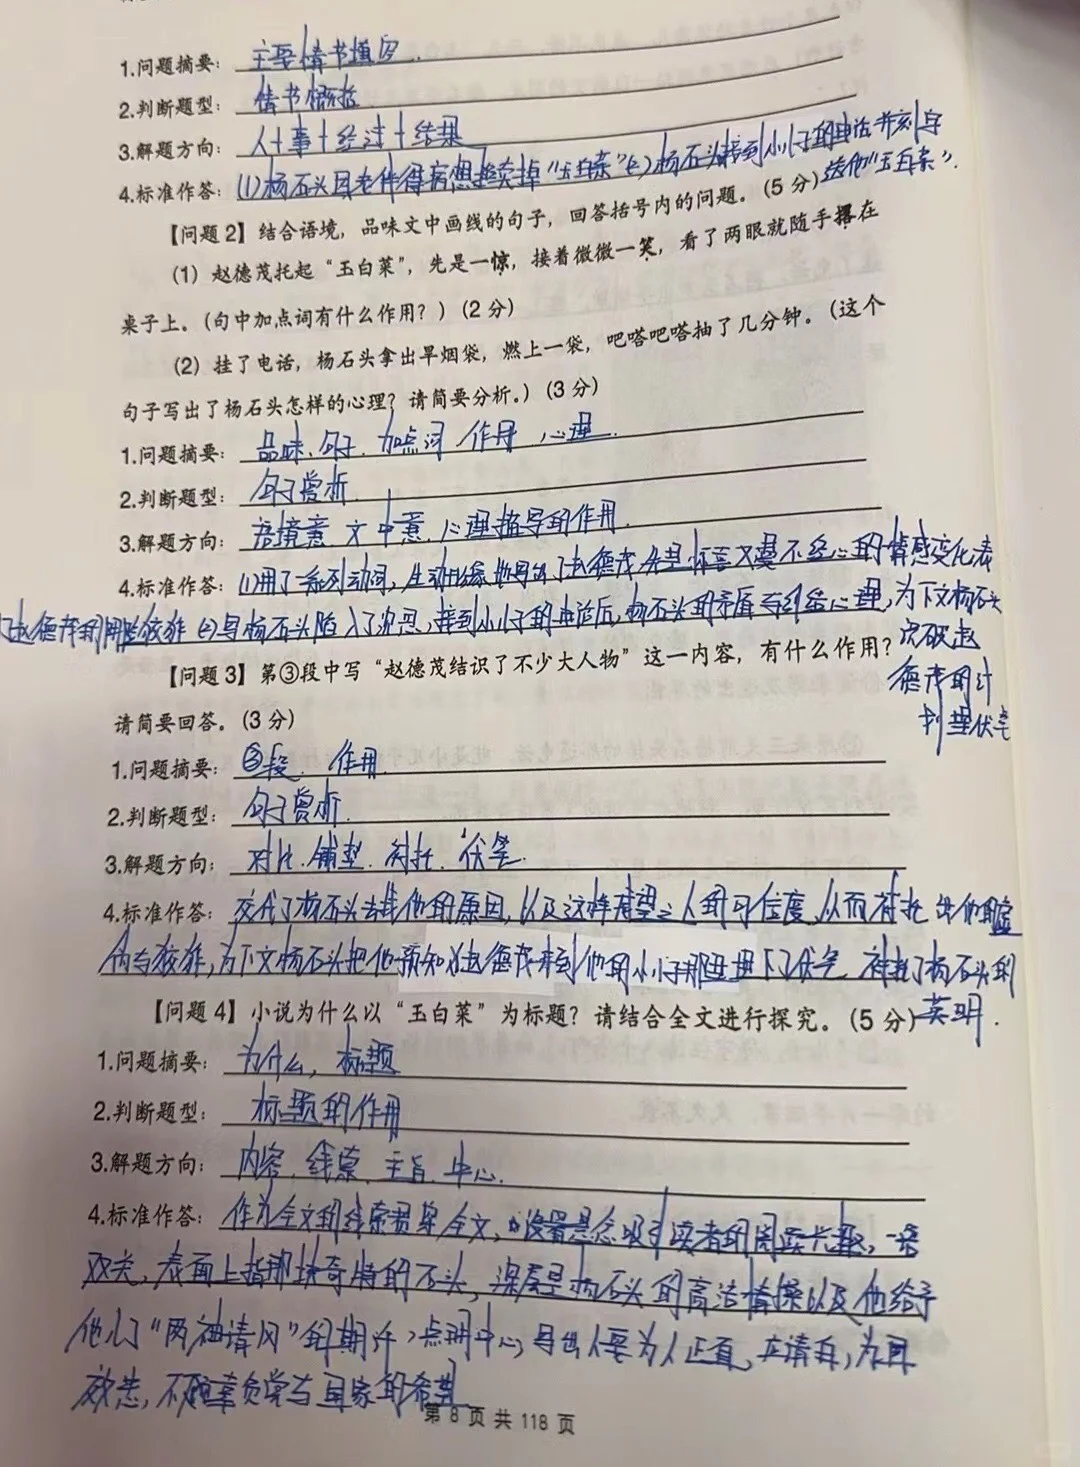 1.问题摘要：主要情节填写.
2.判断题型：情节概括
3.解题方向：人+事+经过+结果
4.标准作答：(1)杨石头因老伴得病想卖掉“玉白菜”(2)杨石头接到小儿子的电话并刻字
送他“玉白菜”.
【问题2】结合语境，品味文中画线的句子，回答括号内的问题。(5分)
(1) 赵德茂托起“玉白菜”，先是一惊，接着微微一笑，看了两眼就随手撂在
桌子上。(句中加点词有什么作用？) (2分)
(2) 挂了电话，杨石头拿出旱烟袋，燃上一袋，吧嗒吧嗒抽了几分钟。(这个
句子写出了杨石头怎样的心理？请简要分析。) (3分)
1.问题摘要：品味、句子、加点词 作用 心理.
2.判断题型：句子赏析
3.解题方向：语境意 文中意. 心理描写的作用.
4.标准作答：(1)用了一系列动词，生动形象地写出了赵德茂先是惊喜又漫不经心的情感变化，表
了赵德茂的阴险狡诈 (2)写杨石头陷入了沉思，接到小儿子的电话后，杨石头的矛盾与纠结心理，为下文杨石头
识破赵
德茂的计
划埋伏笔
【问题3】第③段中写“赵德茂结识了不少大人物”这一内容，有什么作用？
请简要回答。(3分)
1.问题摘要：③段. 作用.
2.判断题型：句子赏析.
3.解题方向：对比. 铺垫. 衬托. 伏笔.
4.标准作答：交代了杨石头去找他的原因，以及这样有望之人的可信度，从而衬托出他的虚
伪与狡诈，为下文杨石头把他预知以赵德茂来到他的小儿子那里埋下了伏笔 衬托了杨石头的
英明.
【问题4】小说为什么以“玉白菜”为标题？请结合全文进行探究。(5分)
1.问题摘要：为什么，标题
2.判断题型：标题的作用
3.解题方向：内容. 线索. 主旨. 中心.
4.标准作答：作为全文的线索贯穿全文，设置悬念吸引读者的阅读兴趣，一语
双关，表面上指那块奇特的石头，深层是杨石头的高洁情操以及他给予
他儿子“两袖清风”的期许，点明中心，写出人要为人正直，在请自，为国
效忠，不辜负党与国家的希望
第 8 页 共 118 页